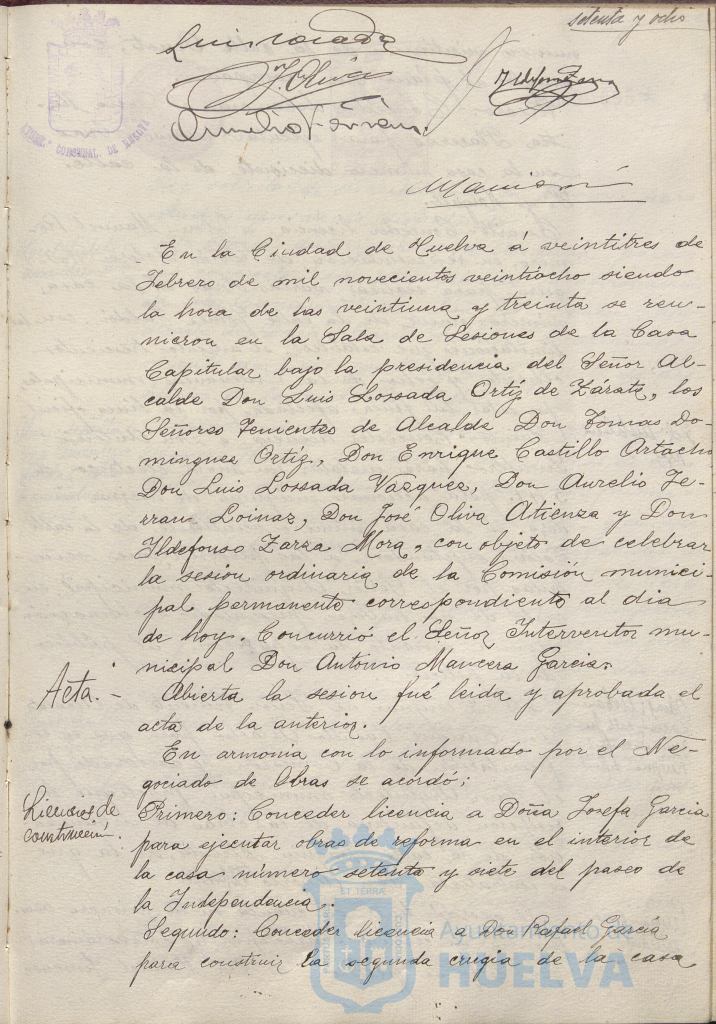 setenta y ocho
Luis Losada
J. Oliva
Ildefonso Zarza
Aurelio Ferran
En la Ciudad de Huelva á veintitres de
Febrero de mil novecientos veintiocho siendo
la hora de las veintiuna y treinta se reu-
nieron en la Sala de Sesiones de la Casa
Capitular bajo la presidencia del Señor Al-
calde Don Luis Lossada Ortiz de Zárate, los
Señores Tenientes de Alcalde Don Tomas Do-
minguez Ortiz, Don Enrique Castillo Artacho
Don Luis Lossada Vazquez, Don Aurelio Fe-
rran Loinaz, Don José Oliva Atienza y Don
Ildefonso Zarza Mora, con objeto de celebrar
la sesion ordinaria de la Comisión munici-
pal permanente correspondiente al dia
de hoy. Concurrió el Señor Interventor mu-
nicipal Don Antonio Mancera Garcia.
Acta.-
Abierta la sesion fué leida y aprobada el
acta de la anterior.
En armonia con lo informado por el Ne-
gociado de Obras se acordó;
Licencias de
construcción.
Primero: Conceder licencia a Doña Josefa Garcia
para ejecutar obras de reforma en el interior de
la casa número setenta y siete del paseo de
la Independencia.
Segundo: Conceder licencia a Don Rafael García
para construir la segunda crugia de la casa
Ayuntamiento de
HUELVA